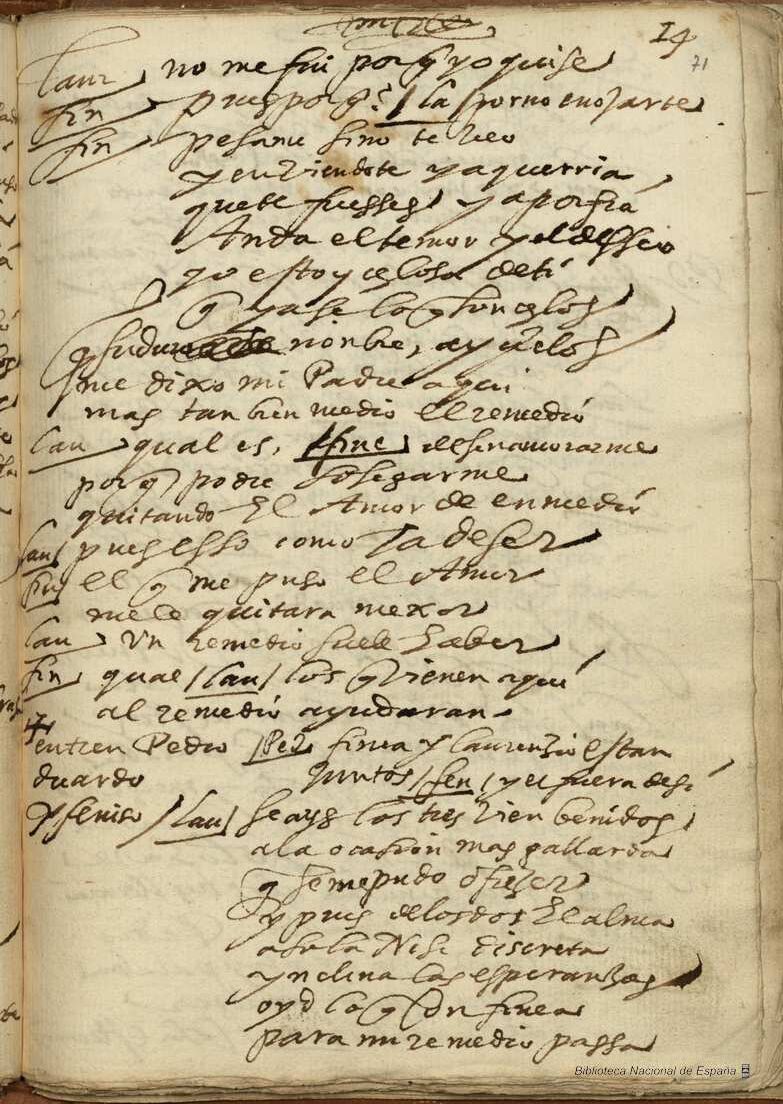 14
71
laur no me fui porq yo quise
fin pues porq? / la / por no enojarte
fin pesame si no te veo
y en viendote ya querria
que te fuesses y a porfia
Anda el temor y el desseo
yo estoy celosa de ti
q ya se lo q son celos
q su du nonbre, ay cielos
me dixo mi Padre aqui
mas tanbien me dio el remedio
lau qual es, / fine / desenamorarme
porq podre sosegarme
quitando El Amor de en medio
lau pues esso como Ja de ser
fin el q me puso el Amor
me le quitara mexor
lau Vn remedio suele haber
fin qual / lau / los q vienen aqui
al remedio ayudaran
entren Pedro / Ped finea y laurenzio estan
duardo juntos / fen / y el fuera de si
y feniso / Lau / seays los tres vien benidos
a la ocassion mas gallarda
q se me pudo ofrezer
y pues de los dos El alma
a sola Nise discreta
ynclina las esperanzas
oyd lo q con finea
para mi remedio passa
Biblioteca Nacional de España